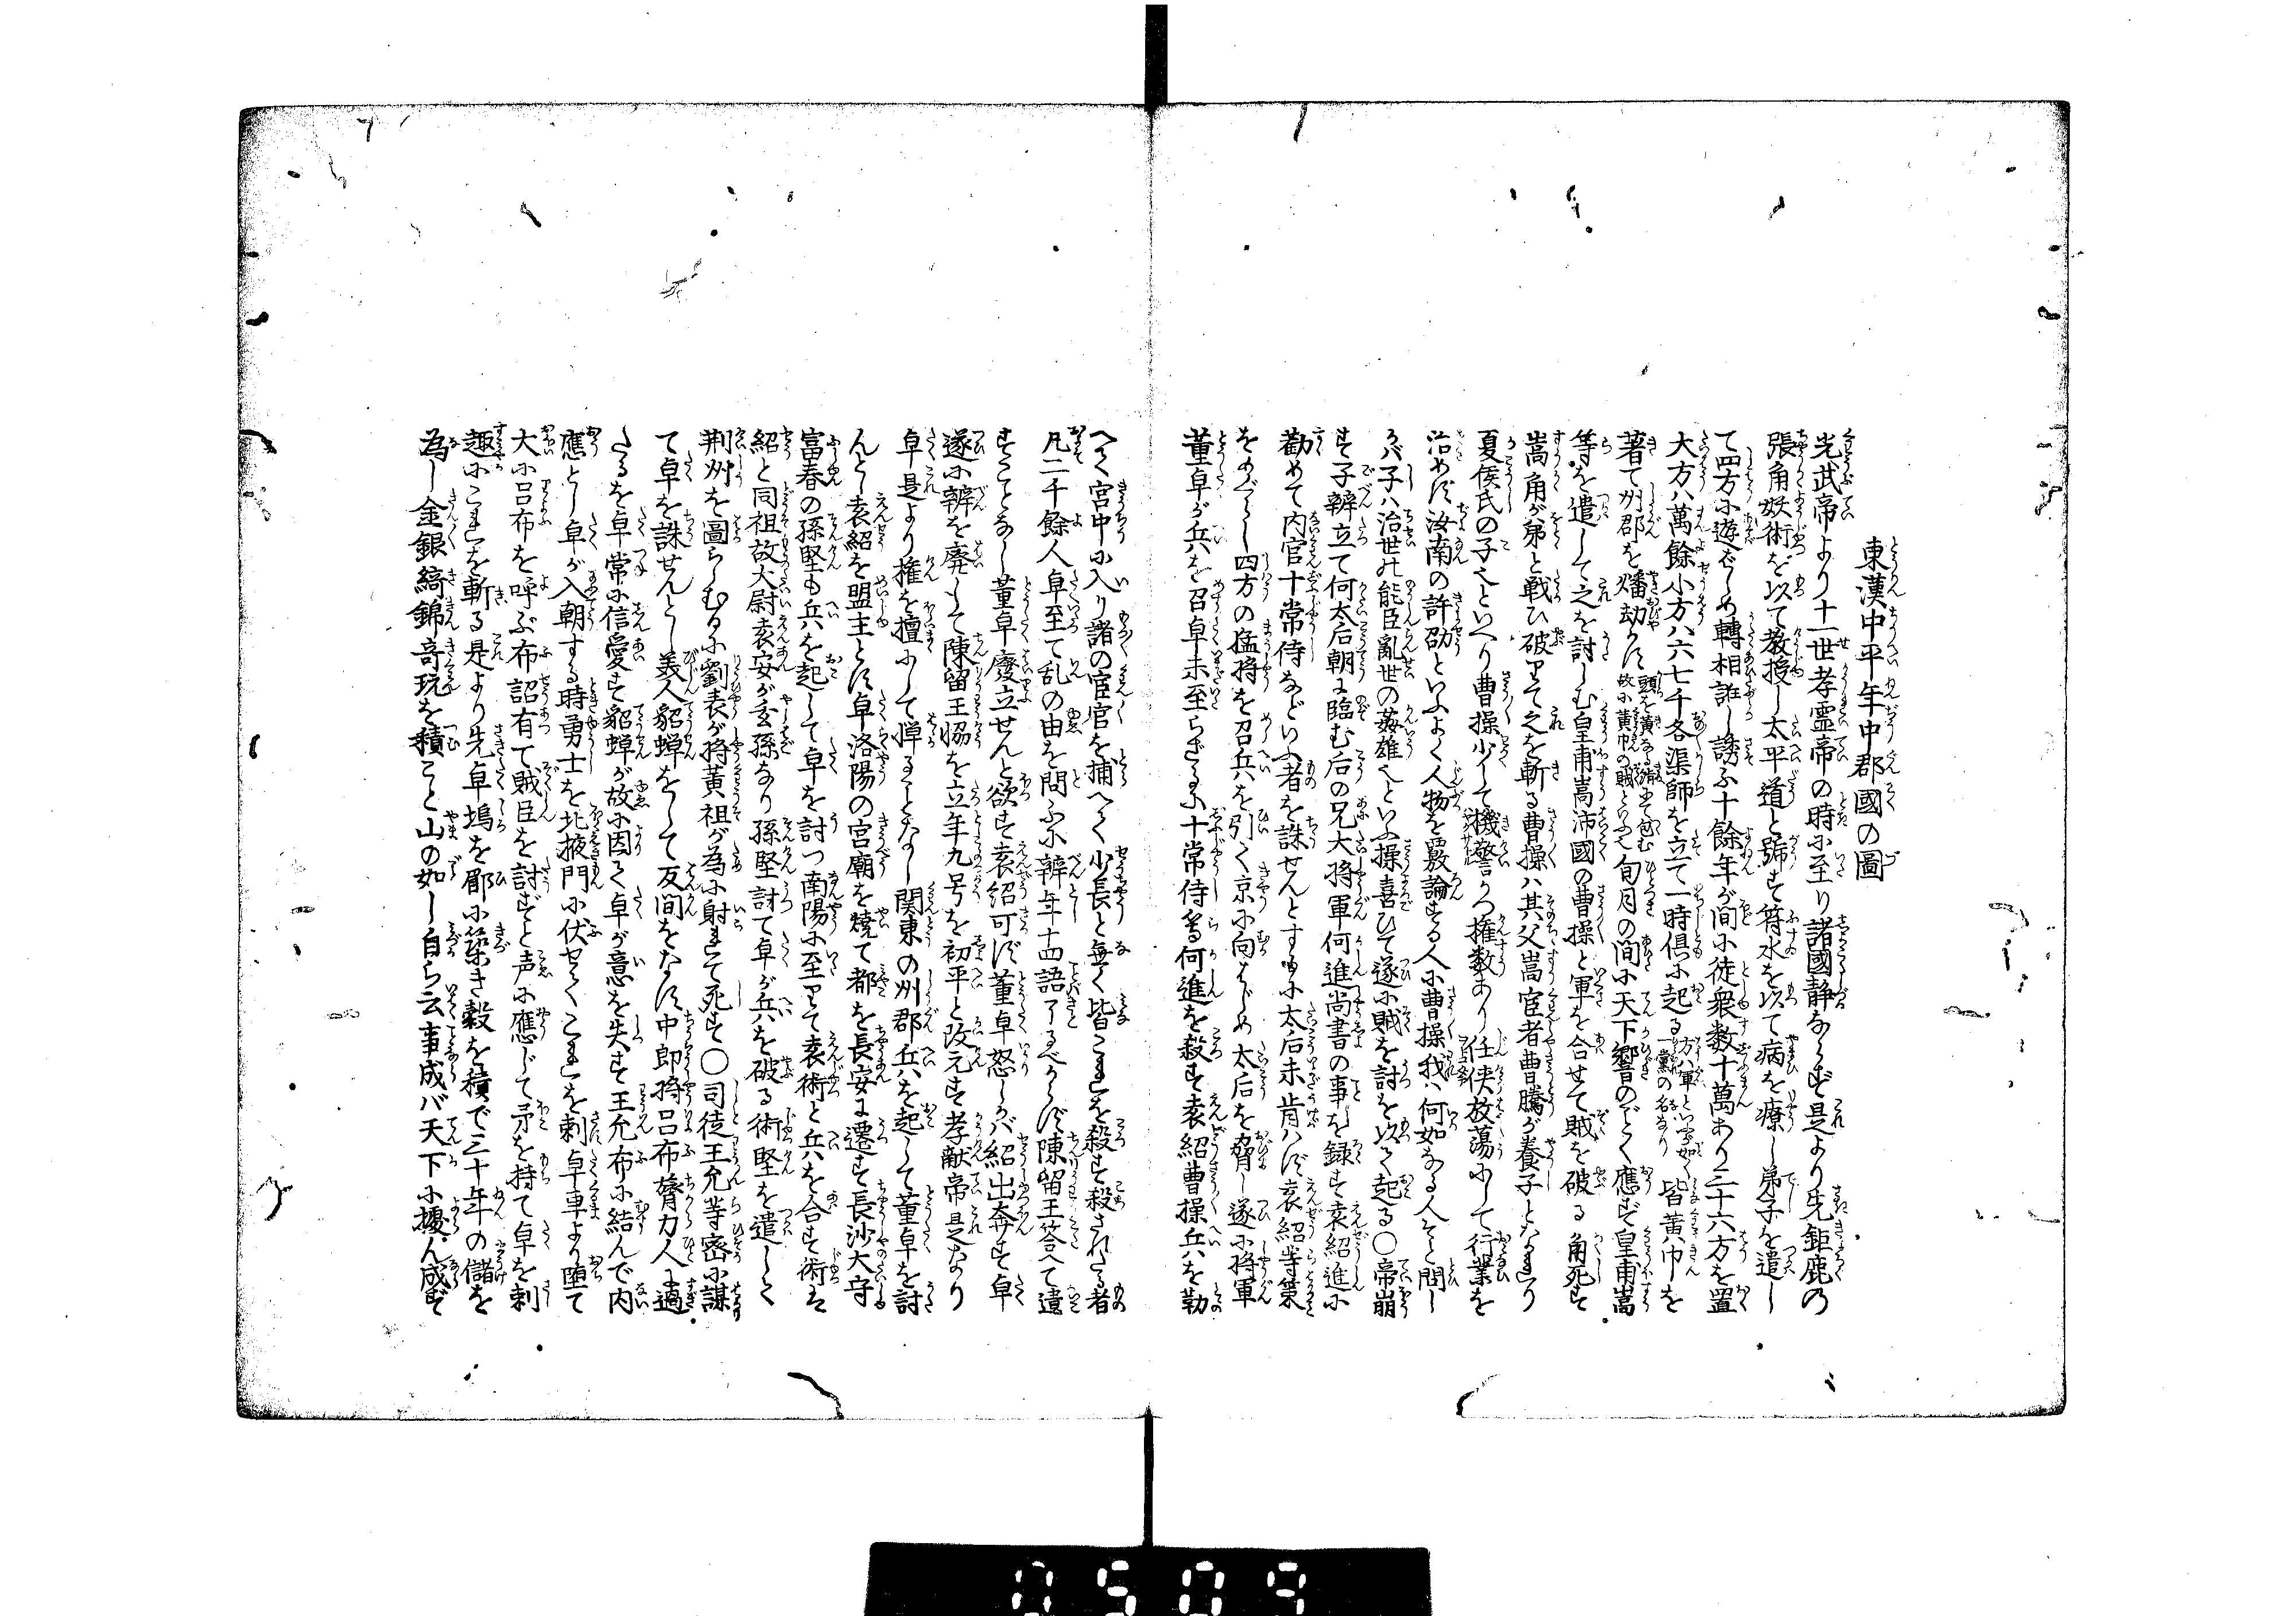 東漢中平年中郡國の圖
光武帝より十一世孝霊帝の時に至り諸國静ならず是より先鉅鹿の
張角妖術を以て教授し太平道と号す符水を以て病を療し弟子を遣し
て四方に遊ばしめ轉相誑し誘ふ十餘年が間に徒衆数十萬あり三十六方を置
大方ハ萬餘小方ハ六七千各渠師を立て一時倶に起る方ハ軍といふ如く一黨の名なり皆黄巾を
著て州郡を燔劫かす頭を黄なる絹にて包む故に黄巾の賊といふ也旬月の間に天下響のごとく應ず皇甫嵩
等を遣して之を討しむ皇甫嵩沛國の曹操と軍を合せて賊を破る角死す
嵩角が弟と戦ひ破りて之を斬る曹操ハ其父嵩宦者曹騰が養子となれり
夏侯氏の子也といへり曹操少して機警かつ権数あり任侠放蕩にして行業を
治めず汝南の許劭といふよく人物を覈論する人に曹操我ハ何如なる人ぞと問し
かバ子ハ治世の能臣亂世の姦雄也といふ操喜ひて遂に賊を討を以て起る〇帝崩
す子辨立て何太后朝に臨む后の兄大将軍何進尚書の事を録す袁紹進に
勧めて内官十常侍などいふ者を誅せんとすゆに太后未肯ハず袁紹等策
をめぐらし四方の猛将を召兵を引く京に向はじめ太后を脅し遂に将軍
董卓が兵を召卓未至らざるに十常侍等何進を殺す袁紹曹操兵を勒
へく宮中に入り諸の宦官を捕へく少長と無く皆これを殺す殺されたる者
凡二千餘人卓至て乱の由を問ふに辨年十四語了るべからず陳留王答へて遺
すことなし董卓廢立せんと欲す袁紹可ず董卓怒しかバ紹出奔す卓
遂に辨を廃して陳留王協を立年九号を初平と改元す孝献帝是なり
卓是より権を擅にして惮ることなし関東の州郡兵を起して董卓を討
んとし袁紹を盟主とす卓洛陽の宮廟を焼て都を長安に遷す長沙大守
富春の孫堅も兵を起して卓を討つ南陽に至りて袁術と兵を合す術は
紹と同祖故大尉袁安が玄孫なり孫堅討て卓が兵を破る術堅を遣しく
荆州を圖らしむるに劉表が将黄祖が為に射れて死す〇司徒王允等密に謀
て卓を誅せんとし美人貂蝉をして反間をなす中郎将呂布膂力人に過
たるを卓常に信愛す貂蝉が故に因て卓が意を失す王允布に結んで内
應とし卓が入朝する時勇士を北掖門に伏せてこれを刺卓車より堕て
大に呂布を呼ぶ布詔有て賊臣を討ずと声に應じて矛を持て卓を刺
趣にこれを斬る是より先卓塢を郿に築き穀を積で三十年の儲を
為し金銀綺錦奇玩を積こと山の如し自ら云事成バ天下に擾ん成ず
0509